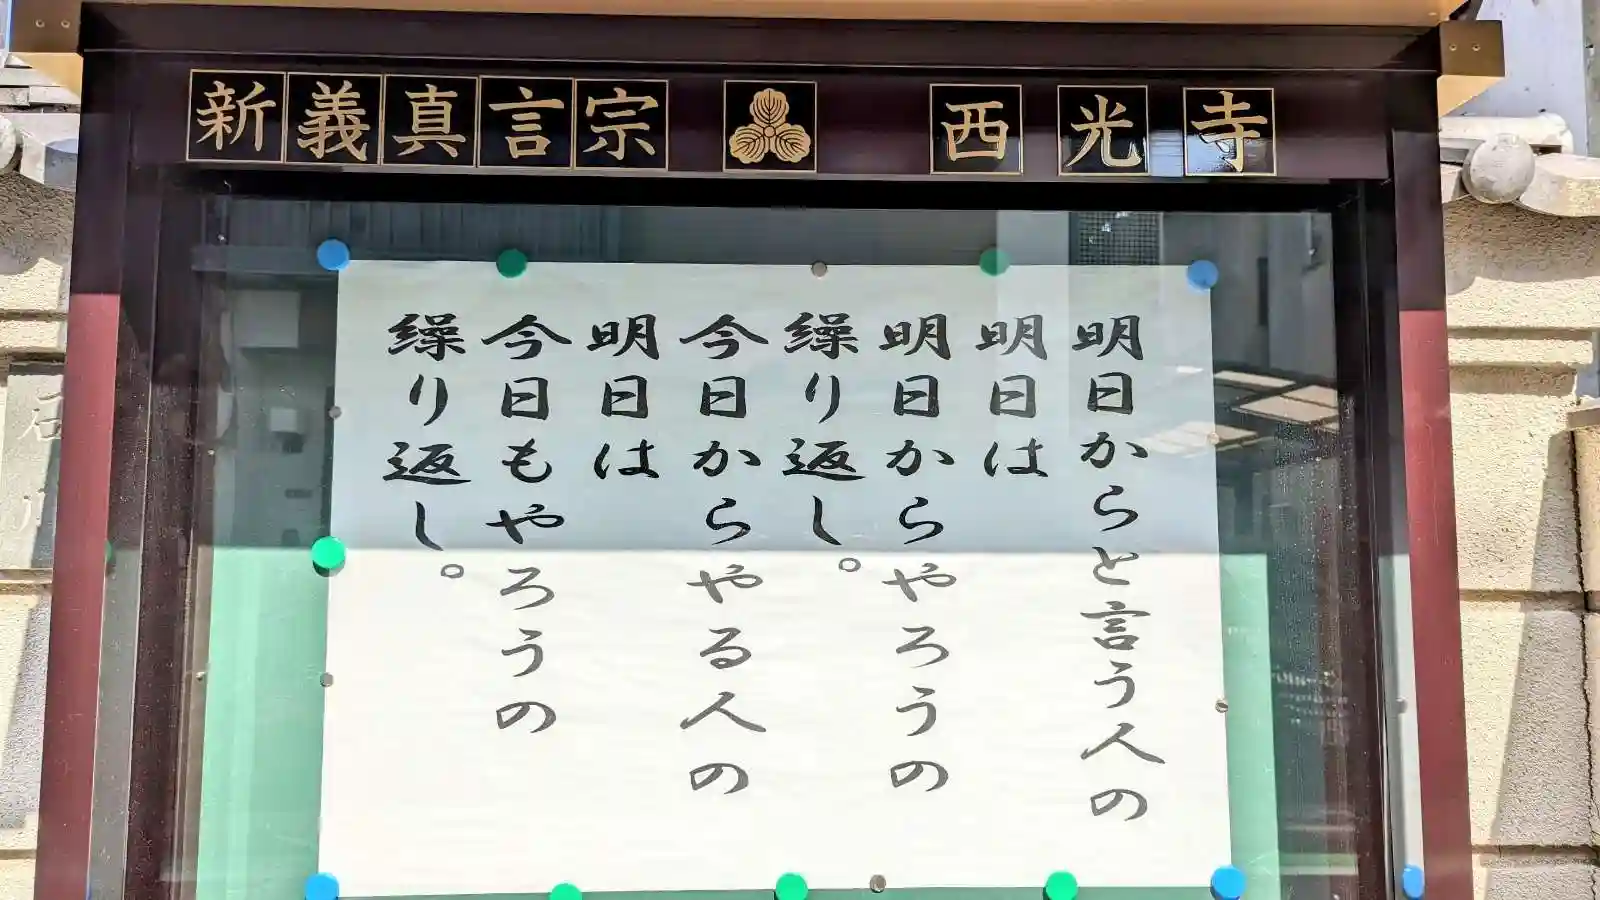 新義真言宗 西光寺
明日からと言う人の
明日は
明日からやろうの
繰り返し。
今日からやる人の
明日は
今日もやろうの
繰り返し。